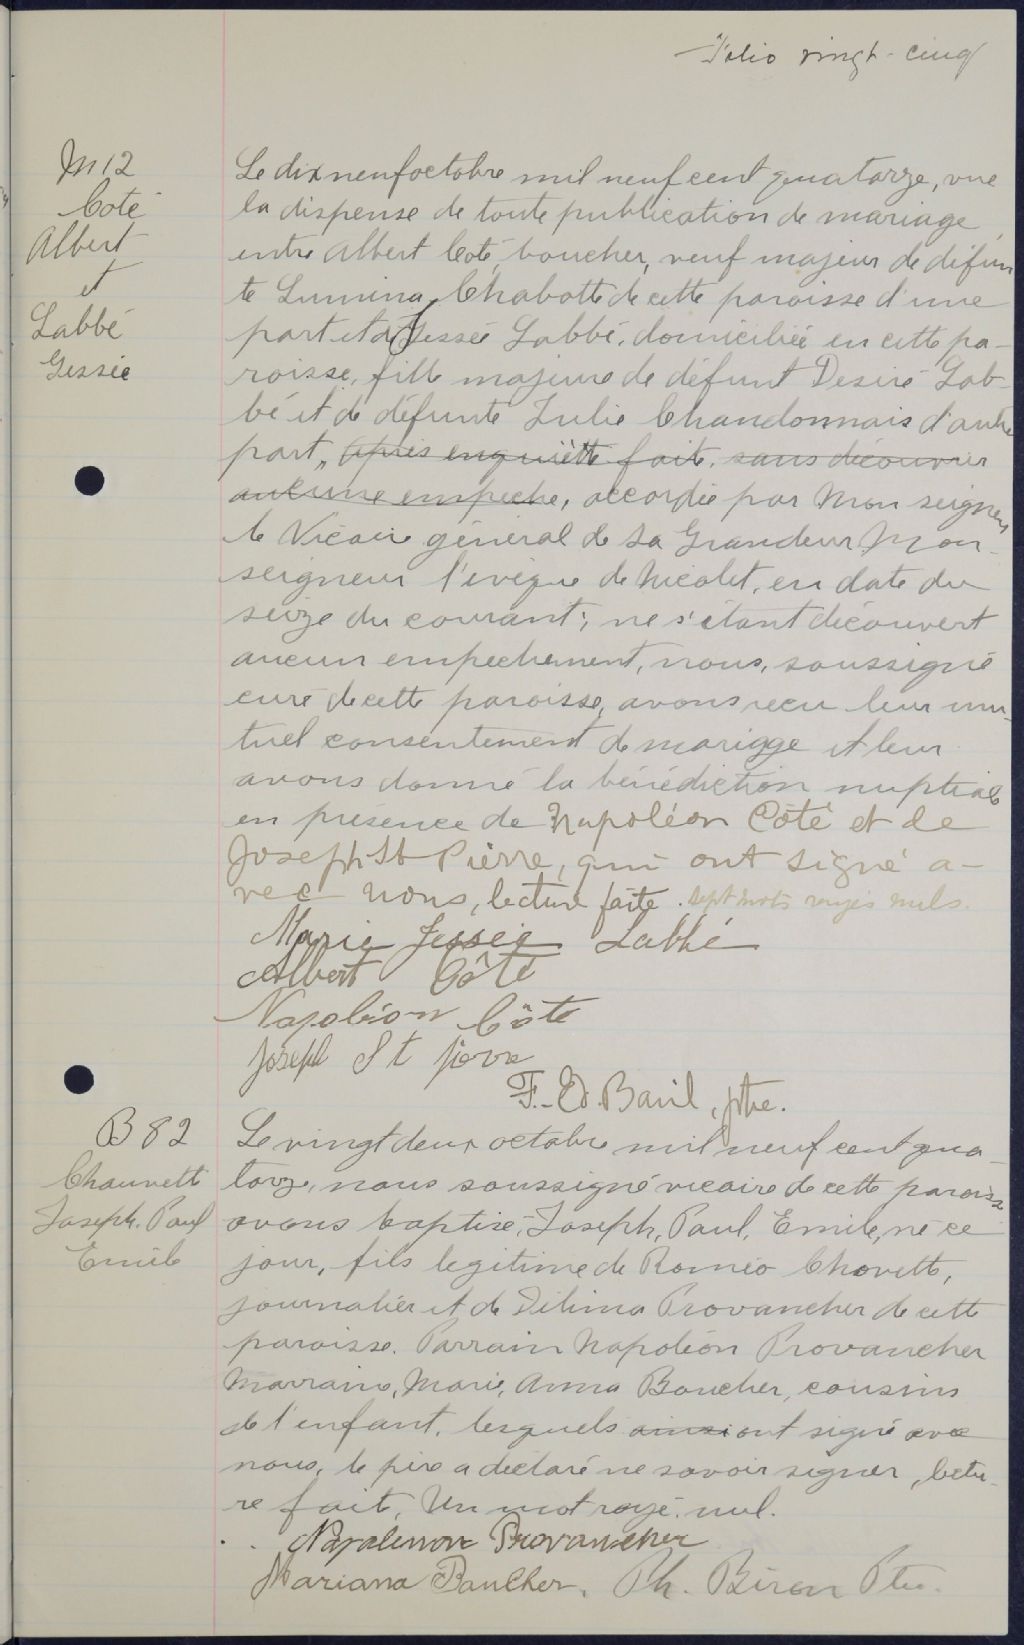 Folio vingt-cinq
M 12
Coté
Albert
et
Labbé
Gessie
Le dix neuf octobre mil neuf cent quatorze, vue
la dispense de toute publication de mariage,
entre Albert Coté, boucher, veuf majeur de défun
te Lumina Chabotte de cette paroisse d'une
part et de Gessée Labbé, domiciliée en cette pa-
roisse, fille majeure de défunt Desiré Lab-
bé et de défunte Julie Chandonnais d'autre
part, après enquiette faite, sans découvrir
aucune empeche, accordée par Mon seigneur
le Vicaire général de Sa Grandeur Mon-
seigneur l'evêque de Nicolet, en date du
seize du courant; ne s'étant découvert
aucun empechement, nous, soussigné
curé de cette paroisse, avons recu leur mu-
tuel consentement de mariage et leur
avons donné la bénédiction nuptiale
en présence de Napoléon Côté et de
Joseph St Pierre, qui ont signé a-
vec nous, lecture faite. sept mots rayés nuls.
Marie Jessée Labbé
Albert Côté
Napoléon Côté
Joseph St pierre
F.-Ed. Baril, ptre.
B 82
Chauvette
Joseph. Paul
Emile
Le vingt deux octobre mil neuf cent qua-
torze, nous soussigné vicaire de cette paroisse
avons baptisé, Joseph, Paul, Emile, né ce
jour, fils legitime de Roméo Chovette,
journalier et de Délima Provancher de cette
paroisse. Parrain Napoléon Provancher
Marraine, Marie, Anna Boucher, cousins
de l'enfant, lesquels ainsi ont signé avec
nous, le père a déclaré ne savoir signer, lectu-
re fait. Un mot rayé nul.
Napoleon Provancher
Mariana Boucher. Ph. Biron Ptre.